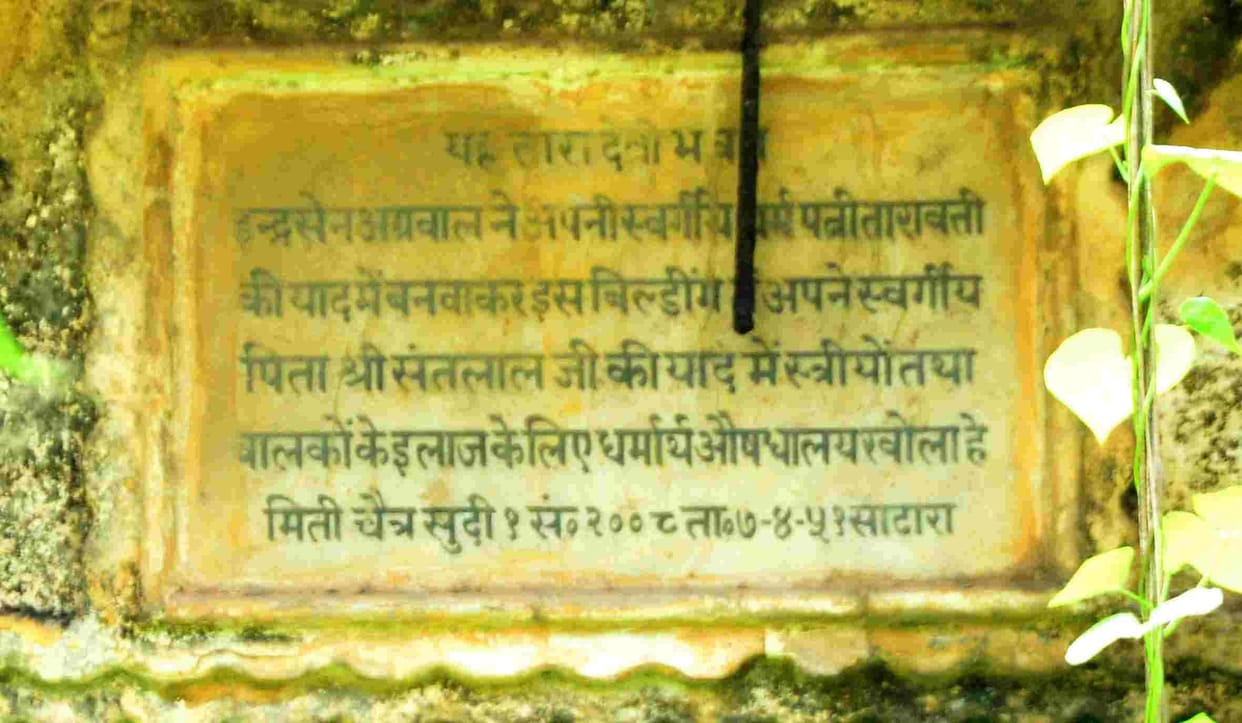 यह तारा देवी भवन
इन्द्रसेन अग्रवाल ने अपनी स्वर्गीय धर्म पत्नी तारावती
की याद में बनवाकर इस बिल्डींग में अपने स्वर्गीय
पिता श्री संतलाल जी की याद में स्त्रीयों तथा
बालकों के इलाज के लिए धर्मार्थ औषधालय खोला हे
मिती चैत्र सुदी १ सं॰ २००८ ता॰ ७-४-५१ साटारा